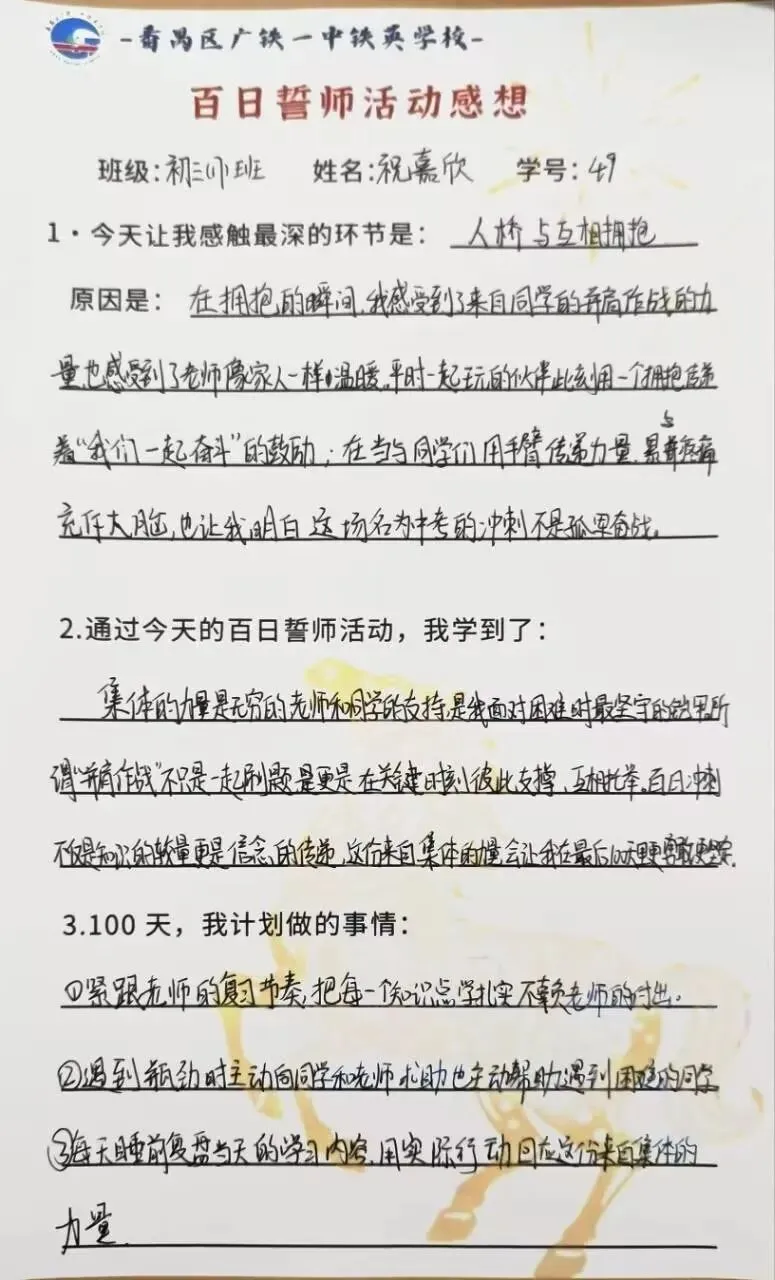 -番禺区广铁一中铁英学校-
百日誓师活动感想
班级:初三(1)班 姓名:祝嘉欣 学号:49
1·今天让我感触最深的环节是: 人桥与互相拥抱
原因是: 在拥抱的瞬间,我感受到了来自同学的并肩作战的力
量也感受到了老师像家人一样温暖,平时一起玩的伙伴此刻用一个拥抱传递
着“我们一起奋斗”的鼓励;在当与同学们用手臂传递力量,累与疼痛
充斥大脑,也让我明白这场名为中考的冲刺不是孤军奋战。
2.通过今天的百日誓师活动,我学到了:
集体的力量是无穷的老师和同学的支持,是我面对困难时最坚实的铠甲,所
谓“并肩作战”不只是一起刷题,更是在关键时刻彼此支撑,互相托举。百日冲刺
不仅是知识的较量更是信念的传递,这份来自集体的力量会让我在最后100天里更勇敢更坚定.
3.100 天,我计划做的事情:
①紧跟老师的复习节奏,把每一个知识点学扎实不辜负老师的付出。
②遇到瓶劲时主动向同学和老师求助也主动帮助遇到困难的同学
③每天睡前复盘当天的学习内容,用实际行动回应这份来自集体的
力量.